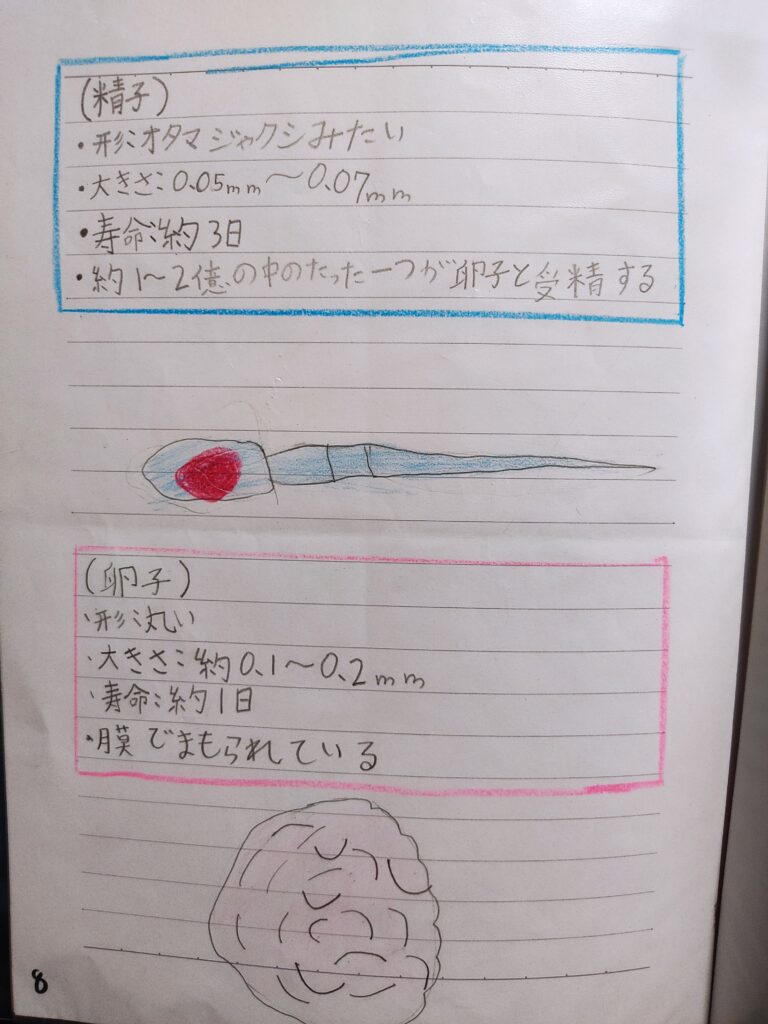 (精子)
・形:オタマジャクシみたい
・大きさ:0.05mm〜0.07mm
・寿命:約3日
・約1〜2億の中のたった一つが卵子と受精する
(卵子)
・形:丸い
・大きさ:約0.1〜0.2mm
・寿命:約1日
・膜でまもられている
8